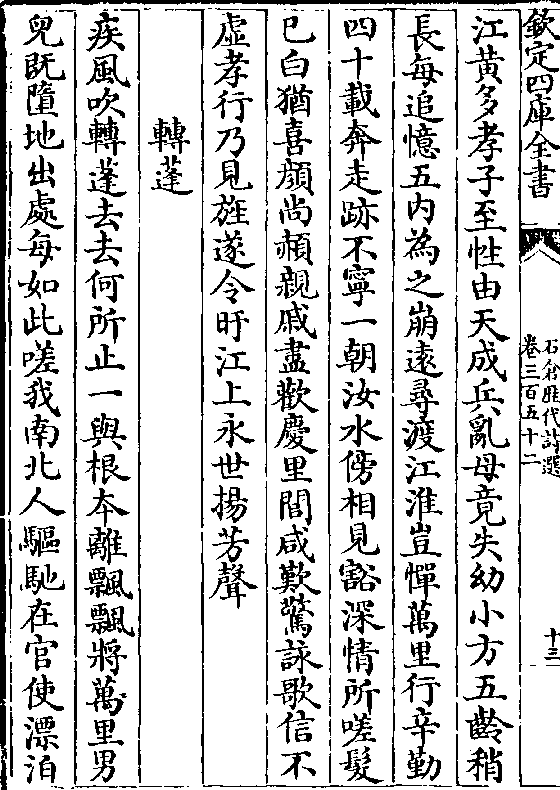 欽定四庫全書
石倉歷代詩選
卷三百五十二
十三
江黄多孝子至性由天成兵亂母竟失幼小方五齡稍
長每追憶五内為之崩逺尋渡江淮豈憚萬里行辛勤
四十載奔走跡不寧一朝汝水傍相見豁深情所嗟髮
已白猶喜顔尚頳親戚盡歡慶里閭咸歎驚詠歌信不
虚孝行乃見旌遂令旴江上永世揚芳聲
轉蓬
疾風吹轉蓬去去何所止一與根本離飄飄將萬里男
兒既墮地出處每如此嗟我南北人驅馳在官使漂泊